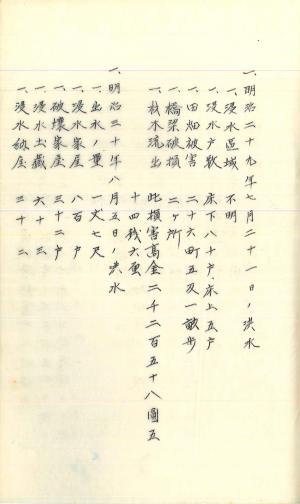 一、明治二十九年七月二十一日ノ洪水
一、浸水區域　不明
一、浸水戸数　床下八十戸、床上五戸
一、田畑被害　二十六町五反一畝歩
一、橋梁破損　二ヶ所
一、材木流出　此損害高金二千二百五十八圓五
十四銭六厘
一、明治三十年八月五日ノ洪水
一、出水ノ量　一丈七尺
一、浸水家屋　八百戸
一、破壊家屋　三十二戸
一、浸水土蔵　六十三
一、浸水納屋　三十二